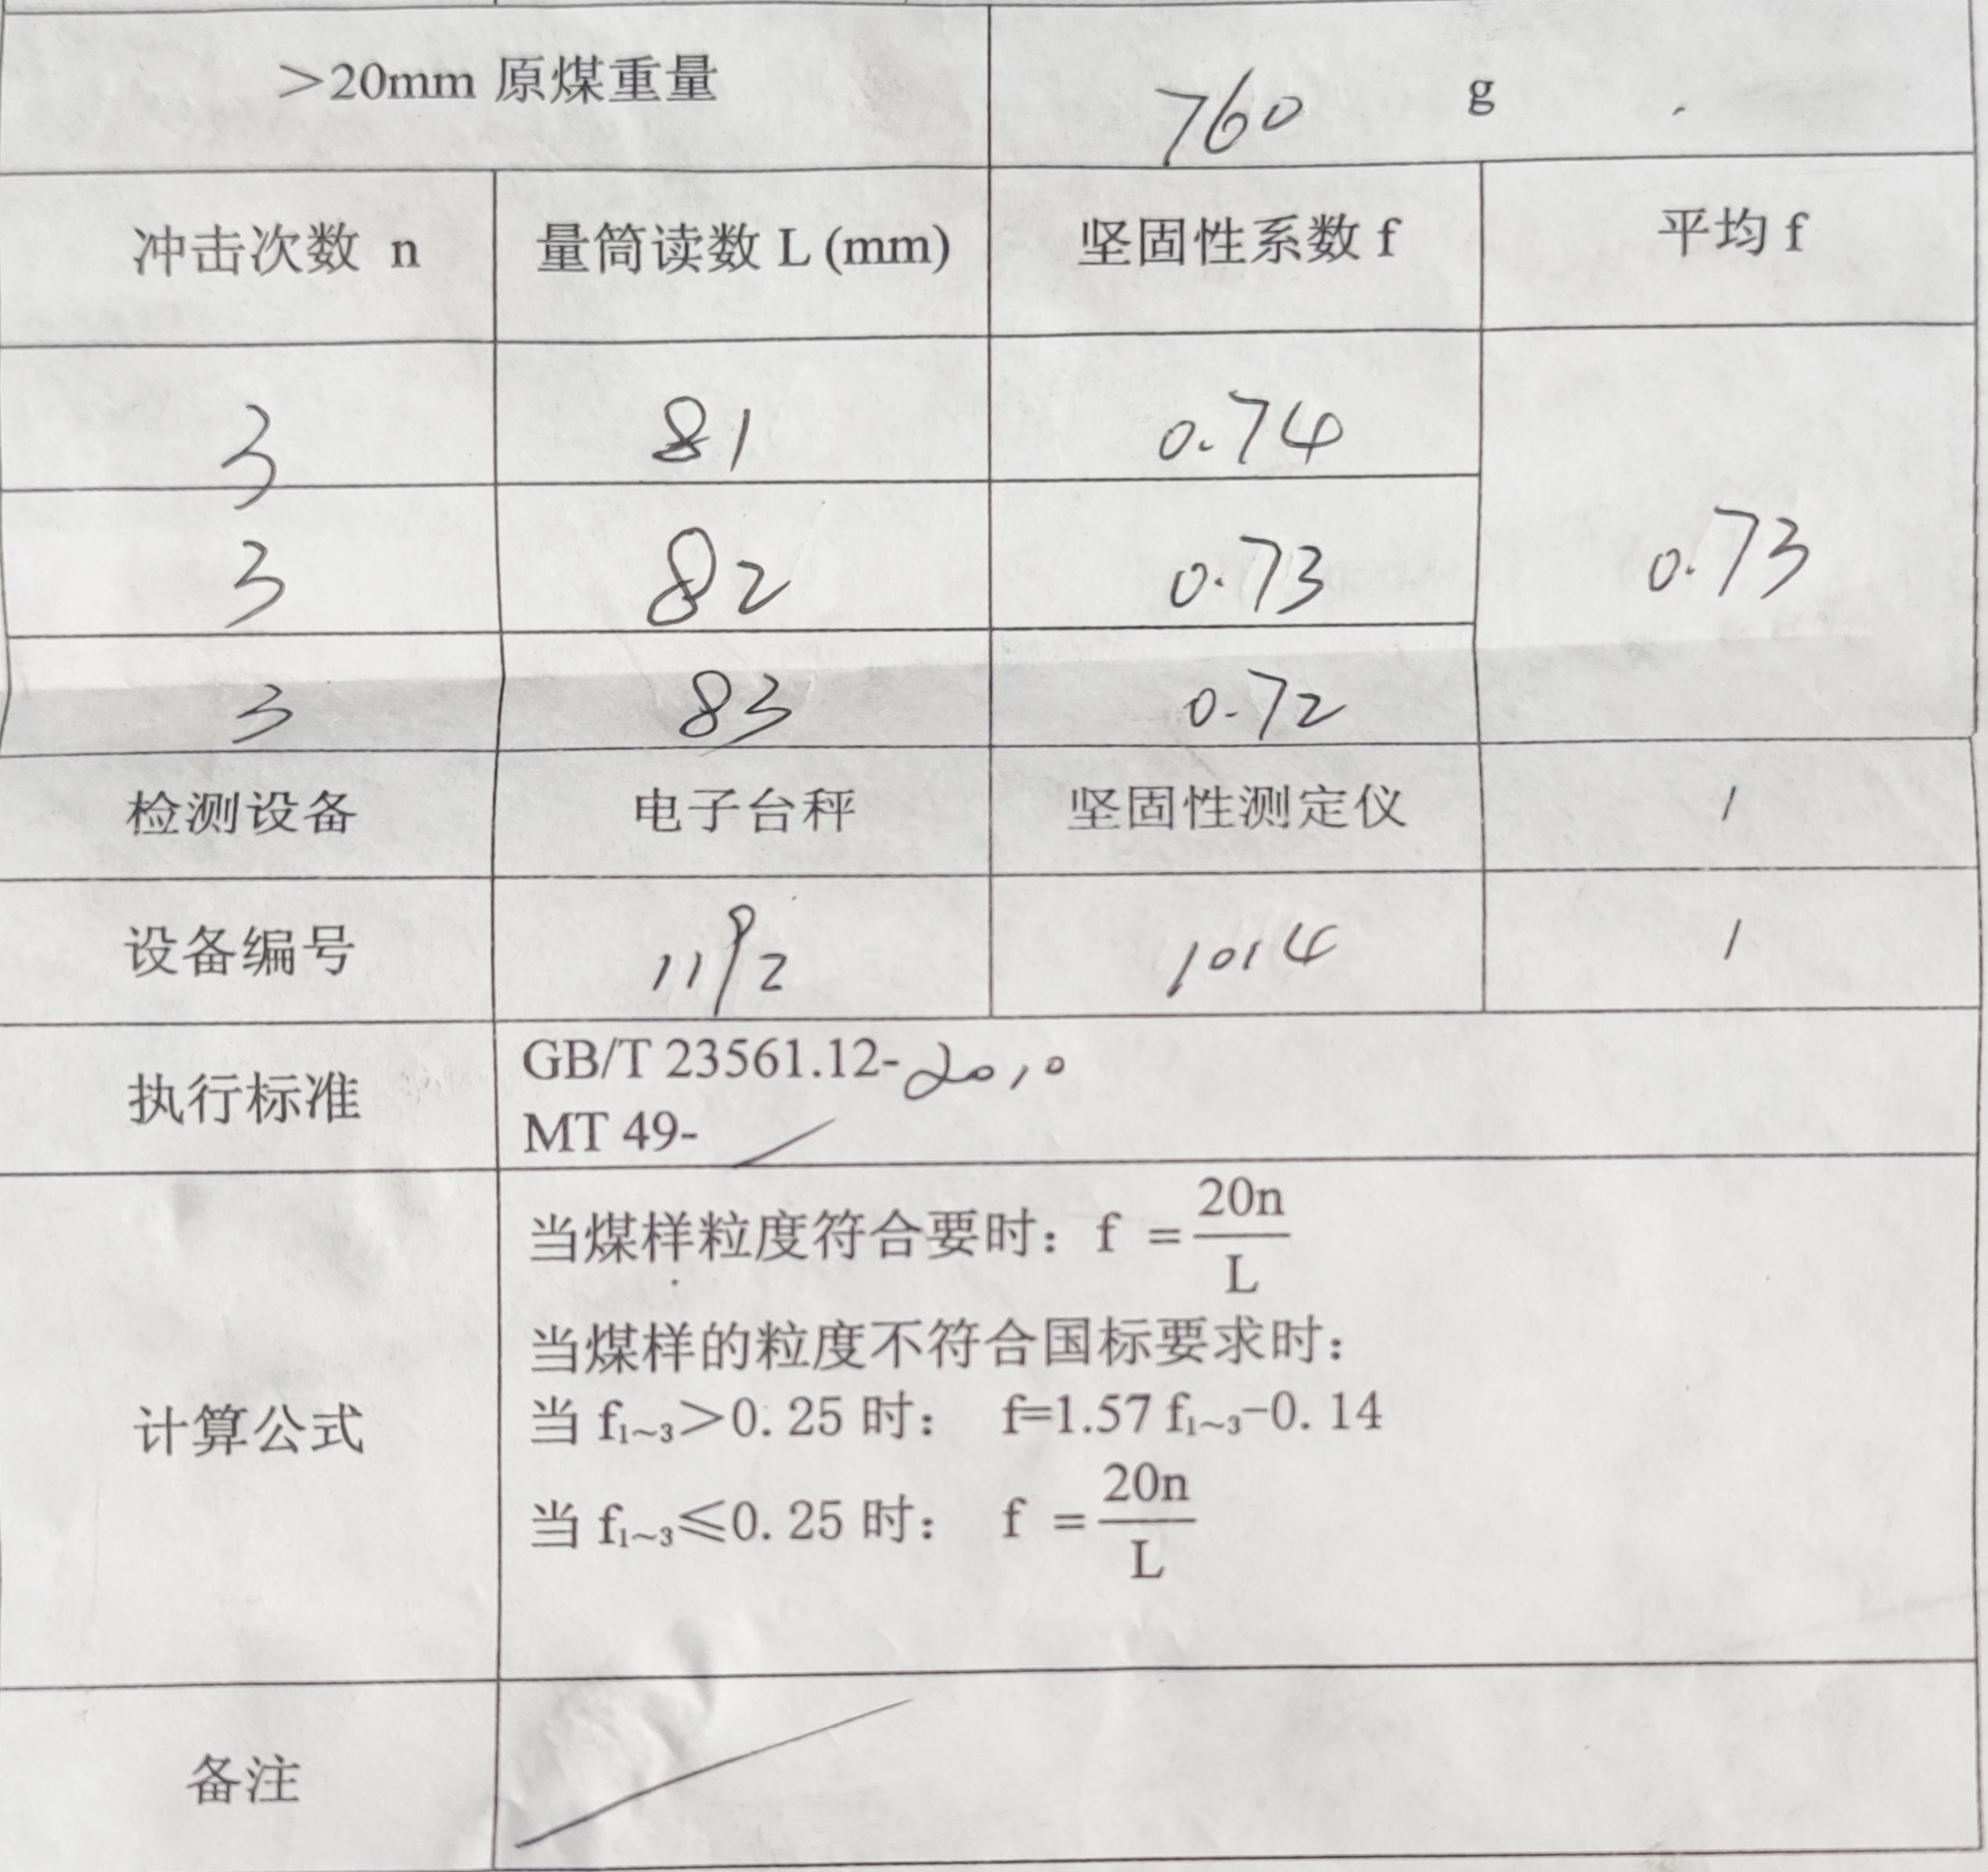 >20mm 原煤重量 760 g
冲击次数 n 量筒读数 L (mm) 坚固性系数 f 平均 f
3 81 0.74
3 82 0.73 0.73
3 83 0.72
检测设备 电子台秤 坚固性测定仪 /
设备编号 1192 1014 /
执行标准
GB/T 23561.12-2010
MT 49- /
计算公式
当煤样粒度符合要时: f = 20n/L
当煤样的粒度不符合国标要求时:
当 f₁~₃>0.25 时: f=1.57 f₁~₃-0.14
当 f₁~₃≤0.25 时: f = 20n/L
备注 /